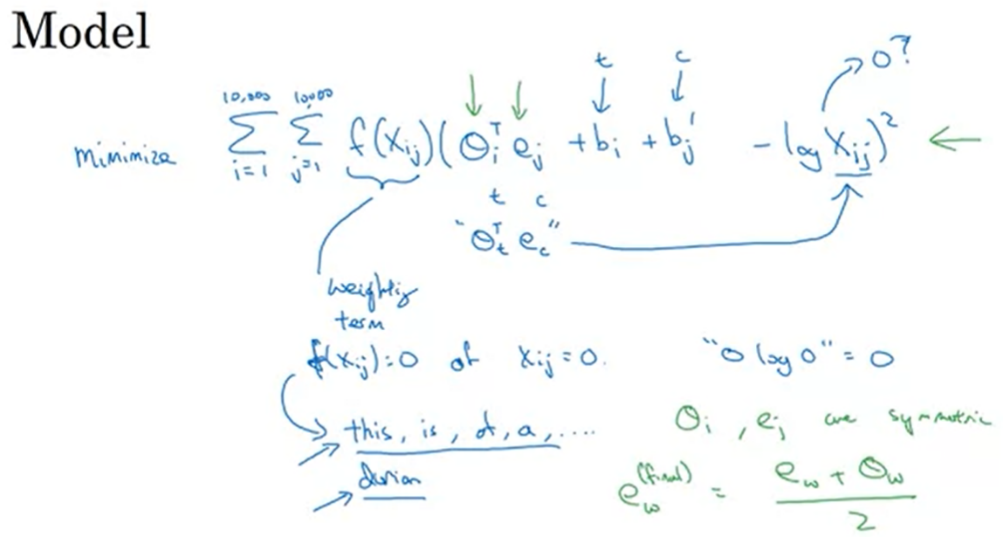 Model
t c → 0?
minimize \sum_{i=1}^{10,000} \sum_{j=1}^{10,000} f(X_{ij}) (Θ_i^T e_j + b_i + b_j' - log X_{ij})^2 ←
t c
"Θ_t^T e_c"
weighting
term
f(X_{ij}) = 0 if X_{ij} = 0. "0 log 0" = 0
this, is, of, a, ....
durian
Θ_i, e_j are symmetric
e_w^{(final)} = \frac{e_w + Θ_w}{2}